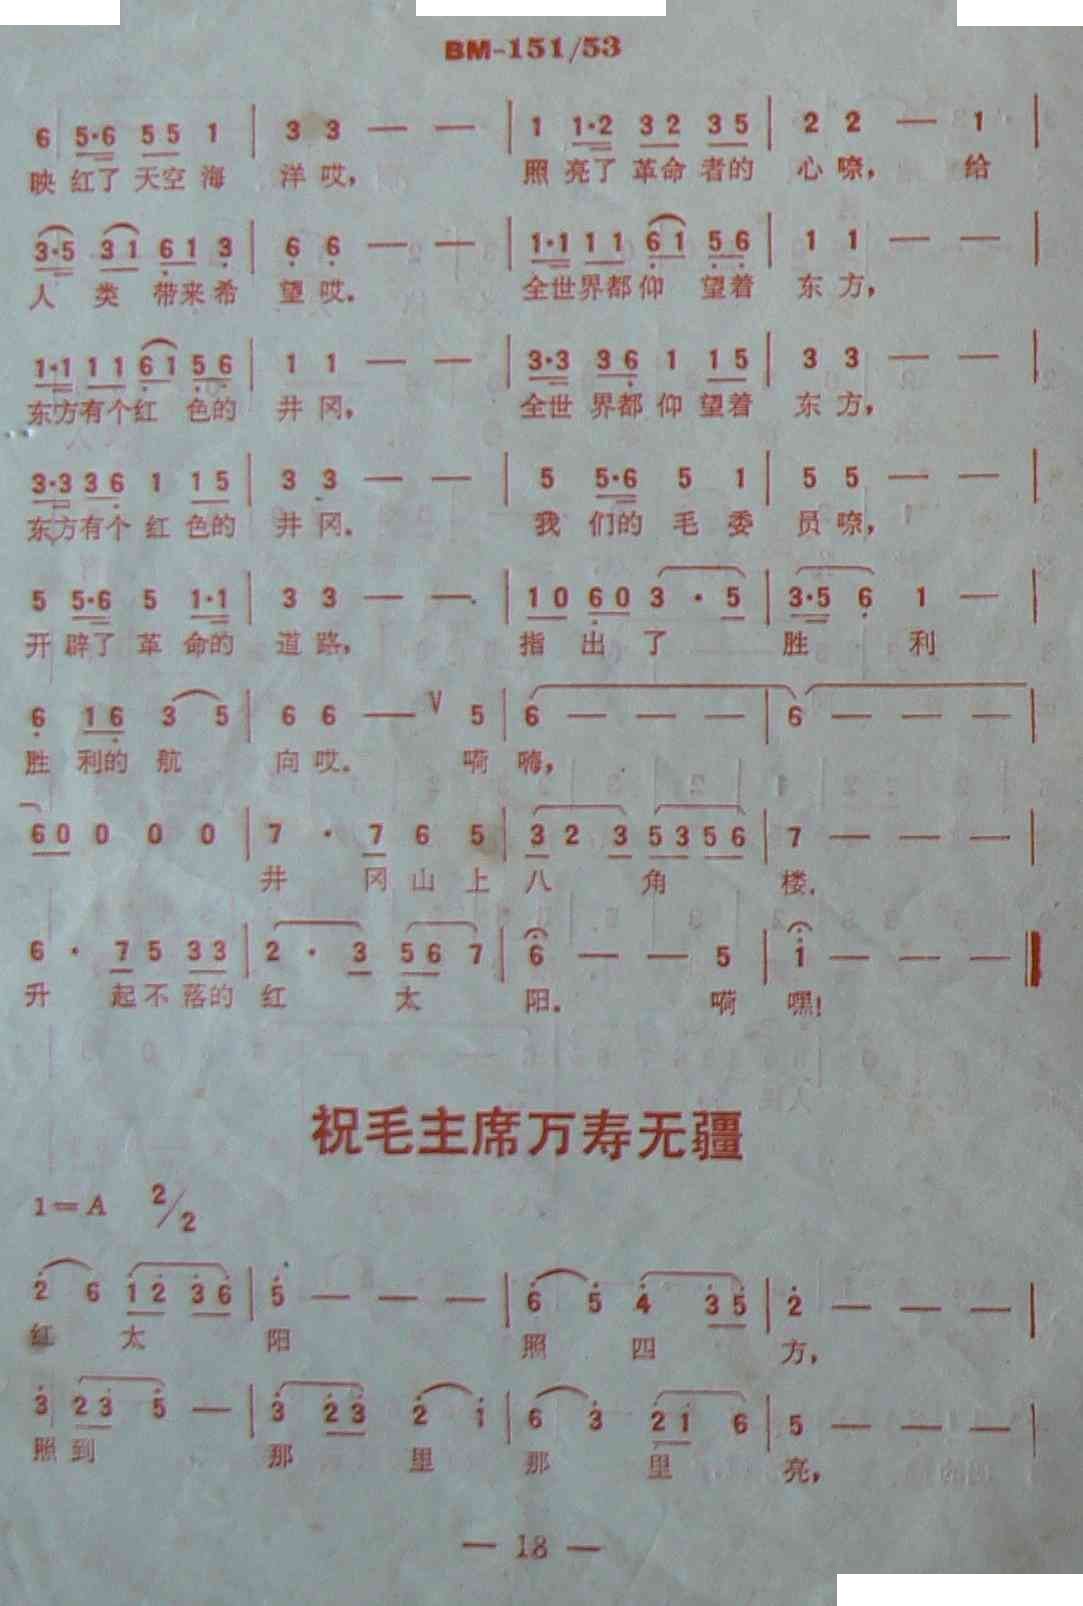 BM-151/53
6 5·6 5 5 1 | 3 3 — — | 1 1·2 3 2 3 5 | 2 2 — 1
映 红了 天空 海 洋 哎, 照 亮了 革命 者的 心 嘹, 给
3·5 3 1 6 1 3 | 6 6 — — | 1·1 1 1 6 1 5 6 | 1 1 — — |
人 类 带来 希 望 哎. 全世界都仰 望着 东 方,
1·1 1 1 6 1 5 6 | 1 1 — — | 3·3 3 6 1 1 5 | 3 3 — — |
东方有个红 色的 井 冈, 全世 界都 仰 望着 东 方,
3·3 3 6 1 1 5 | 3 3 — — | 5 5·6 5 1 | 5 5 — — |
东方有个 红 色的 井 冈. 我 们的 毛 委 员 嘹,
5 5·6 5 1·1 | 3 3 — — | 1 0 6 0 3 · 5 | 3·5 6 1 — |
开 辟了 革 命的 道 路, 指 出 了 胜 利
6 1 6 3 5 | 6 6 — V 5 | 6 — — — | 6 — — — |
胜 利的 航 向 哎. 嗬 嗨,
6 0 0 0 0 | 7 · 7 6 5 | 3 2 3 5 3 5 6 | 7 — — — |
井 冈 山 上 八 角 楼.
6 · 7 5 3 3 | 2 · 3 5 6 7 | 6 — — 5 | 1 — — —
升 起 不 落的 红 太 阳. 嗬 嘿!
祝毛主席万寿无疆
1=A 2/2
2 6 1 2 3 6 | 5 — — — | 6 5 4 3 5 | 2 — — — |
红 太 阳 照 四 方,
3 2 3 5 — | 3 2 3 2 1 | 6 3 2 1 6 | 5 — — — |
照 到 那 里 那 里 亮,
— 18 —